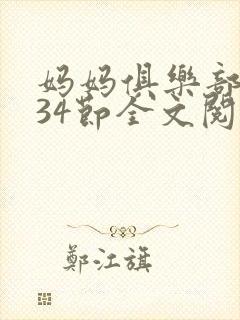 妈妈俱樂部
34節全文閱
鄭江旗